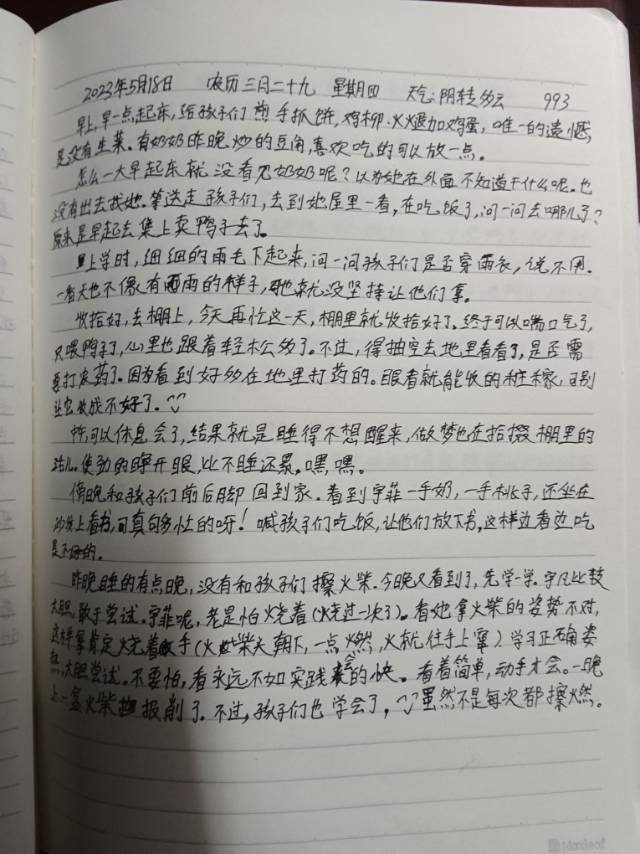 2023年5月18日 农历三月二十九 星期四 天气:阴转多云 993
早上,早一点起床,给孩子们煎手抓饼,鸡柳、火腿加鸡蛋,唯一的遗憾,
是没有生菜。有奶奶昨晚炒的豆角,喜欢吃的可以放一点。
怎么一大早起床就没看见奶奶呢?以为她在外面不知道干什么呢。也
没有出去找她。等送走孩子们,去到她屋里一看,在吃饭了,问一问去哪儿了?
原来是早起去集上卖鸭子去了。
上学时,细细的雨毛下起来,问一问孩子们是否穿雨衣,说不用。
一看天也不像有雨的样子,也就没坚持让他们拿。
收拾好,去棚上,今天再忙这一天,棚里就收拾好了。终于可以喘口气了,
只喂鸭子了,心里也跟着轻松多了。不过,得抽空去地里看看了,是否需
要打农药了。因为看到好多在地里打药的。眼看就能收的庄稼,可别
让虫 不好了。
终可以休息会了,结果就是睡得不想醒来,做梦也在拾掇棚里的
活儿。使劲的睁开眼,比不睡还累。嘿,嘿。
傍晚和孩子们前后脚回到家。看到宇菲一手奶,一手桃子,还坐在
沙发上看书,可真够忙的呀!喊孩子们吃饭,让他们放下书,这样边看边吃
是不好的。
昨晚睡的有点晚,没有和孩子们擦火柴。今晚又看到了,先学一学。宇凡比较
大胆,敢于尝试。宇菲呢,老是怕烧着(烧过一次了)。看她拿火柴的姿势不对,
这样拿肯定烧着手(火柴头朝下,一点燃,火就往手上窜)。学习正确姿
势,大胆尝试。不要怕,看永远不如实践会的快。看着简单,动手才会。一晚
上一盒火柴报削了。不过,孩子们也学会了,虽然不是每次都擦燃。
Maxleaf